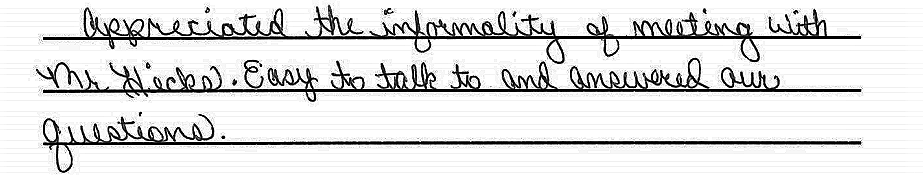 Appreciated the informality of meeting with
Mr. Hicks. Easy to talk to and answered our
questions.